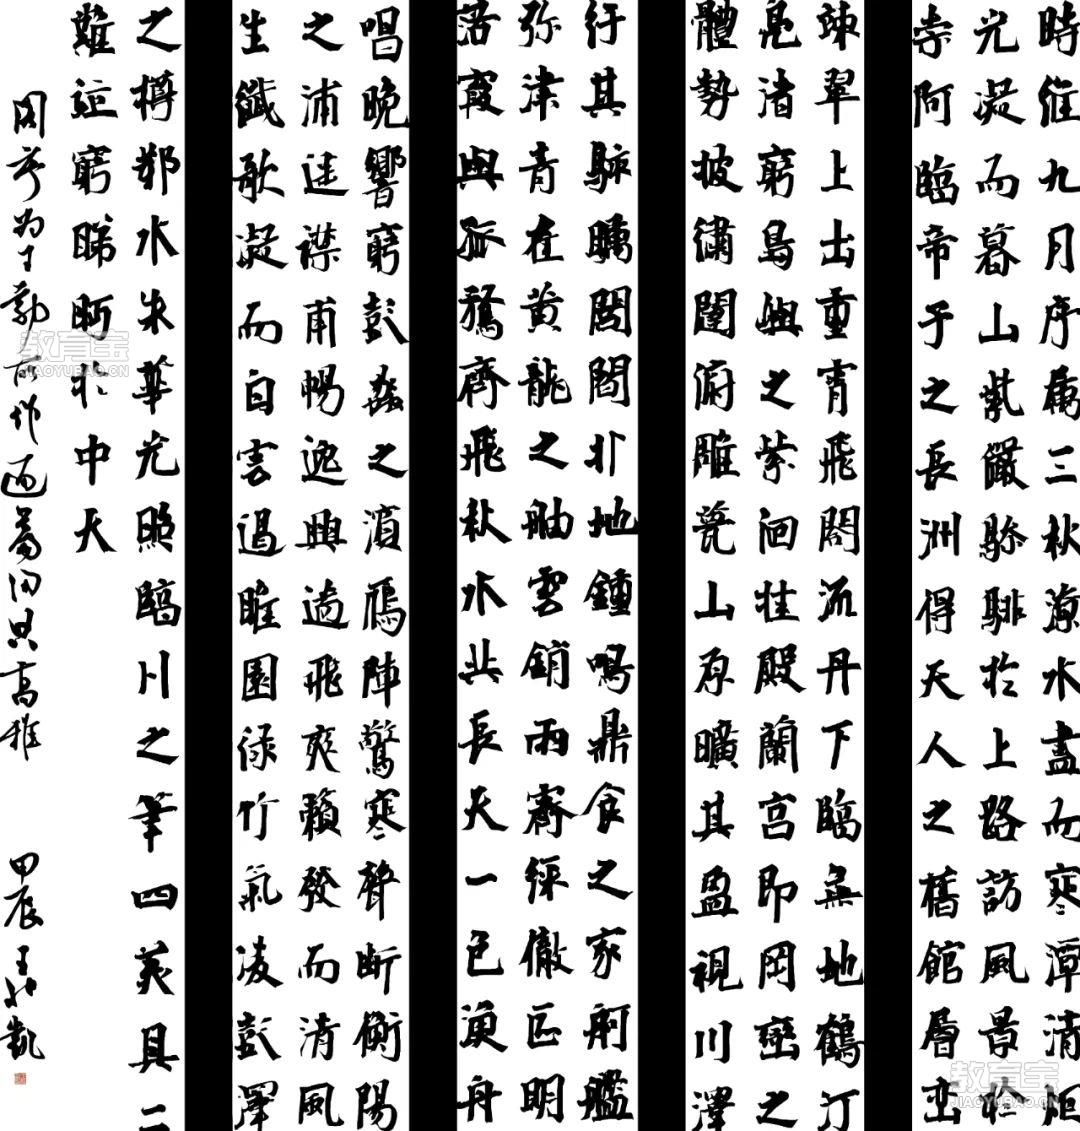 時維九月序属三秋潦水盡而寒潭清烟
光凝而暮山紫儼驂騑於上路訪風景於
崇阿臨帝子之長洲得天人之舊館層巒
竦翠上出重霄飛閣流丹下臨無地鶴汀
鳧渚窮島嶼之縈洄桂殿蘭宫即岡巒之
體勢披繡闥俯雕甍山原曠其盈視川澤
纡其駭矚閭閻扑地鍾鳴鼎食之家舸艦
弥津青雀黄龍之舳雲銷雨霽彩徹区明
落霞與孤鶩齊飛秋水共長天一色漁舟
唱晚響窮彭蠡之濱鴈陣驚寒聲斷衡陽
之浦遥襟甫暢逸興遄飛爽籟發而清風
生纖歌凝而白雲遏睢園緑竹氣凌彭澤
之樽鄴水朱華光照臨川之筆四美具二
難並窮睇眄於中天
为 所作 高雅
甲辰王 凱
教育宝
JIAOYUBAO.CN
教育宝
JIAOYUBAO.CN